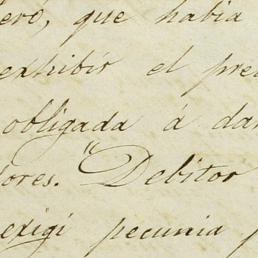 ero, que habia
exhibir el pre
obligada á dar
ores. "Debitor
exigi pecunia p